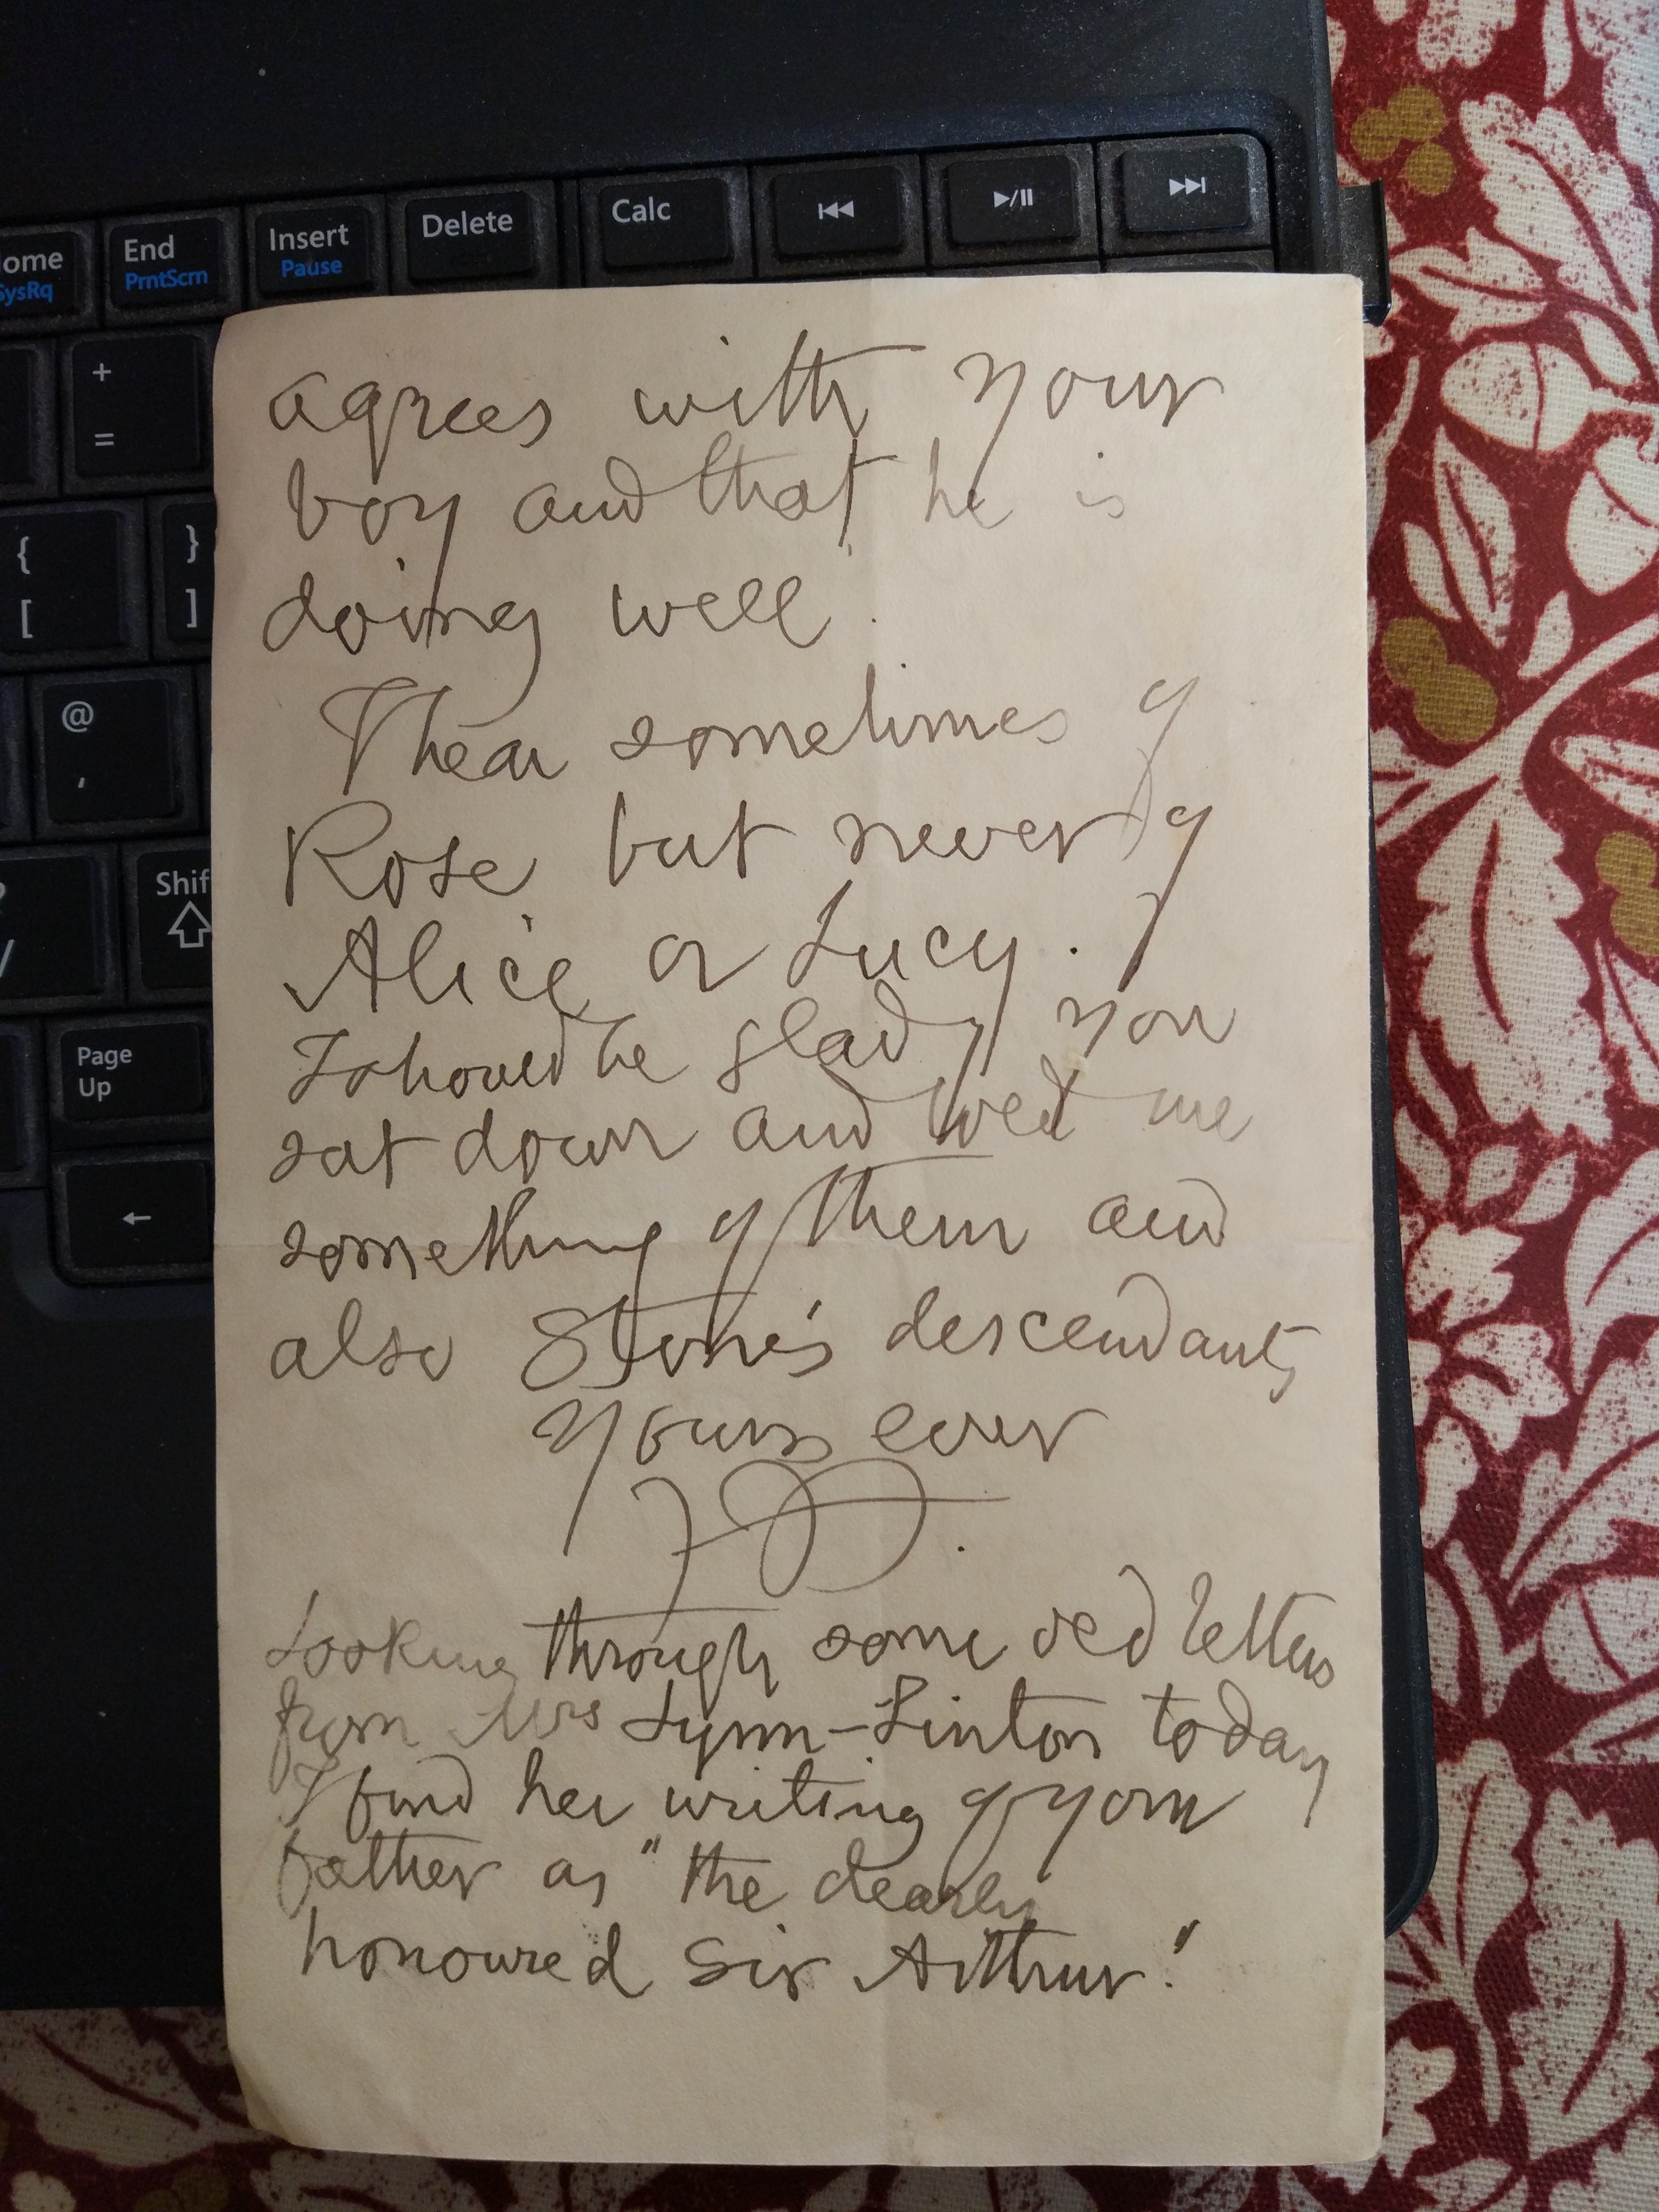 Calc
Delete
Insert
Pause
End
PrntScrn
ome
SysRq
+
=
{
[
}
]
@
Shif
Page
Up
agrees with your
boy and that he is
doing well.
I hear sometimes of
Rose but never of
Alice or Lucy.
I should be glad if you
sat down and told me
something of them and
also Stone's descendants
Yours ever
Looking through some old letters
from Mrs Lynn-Linton today
I find her writing of your
father as "the dearly
honoured Sir Arthur."